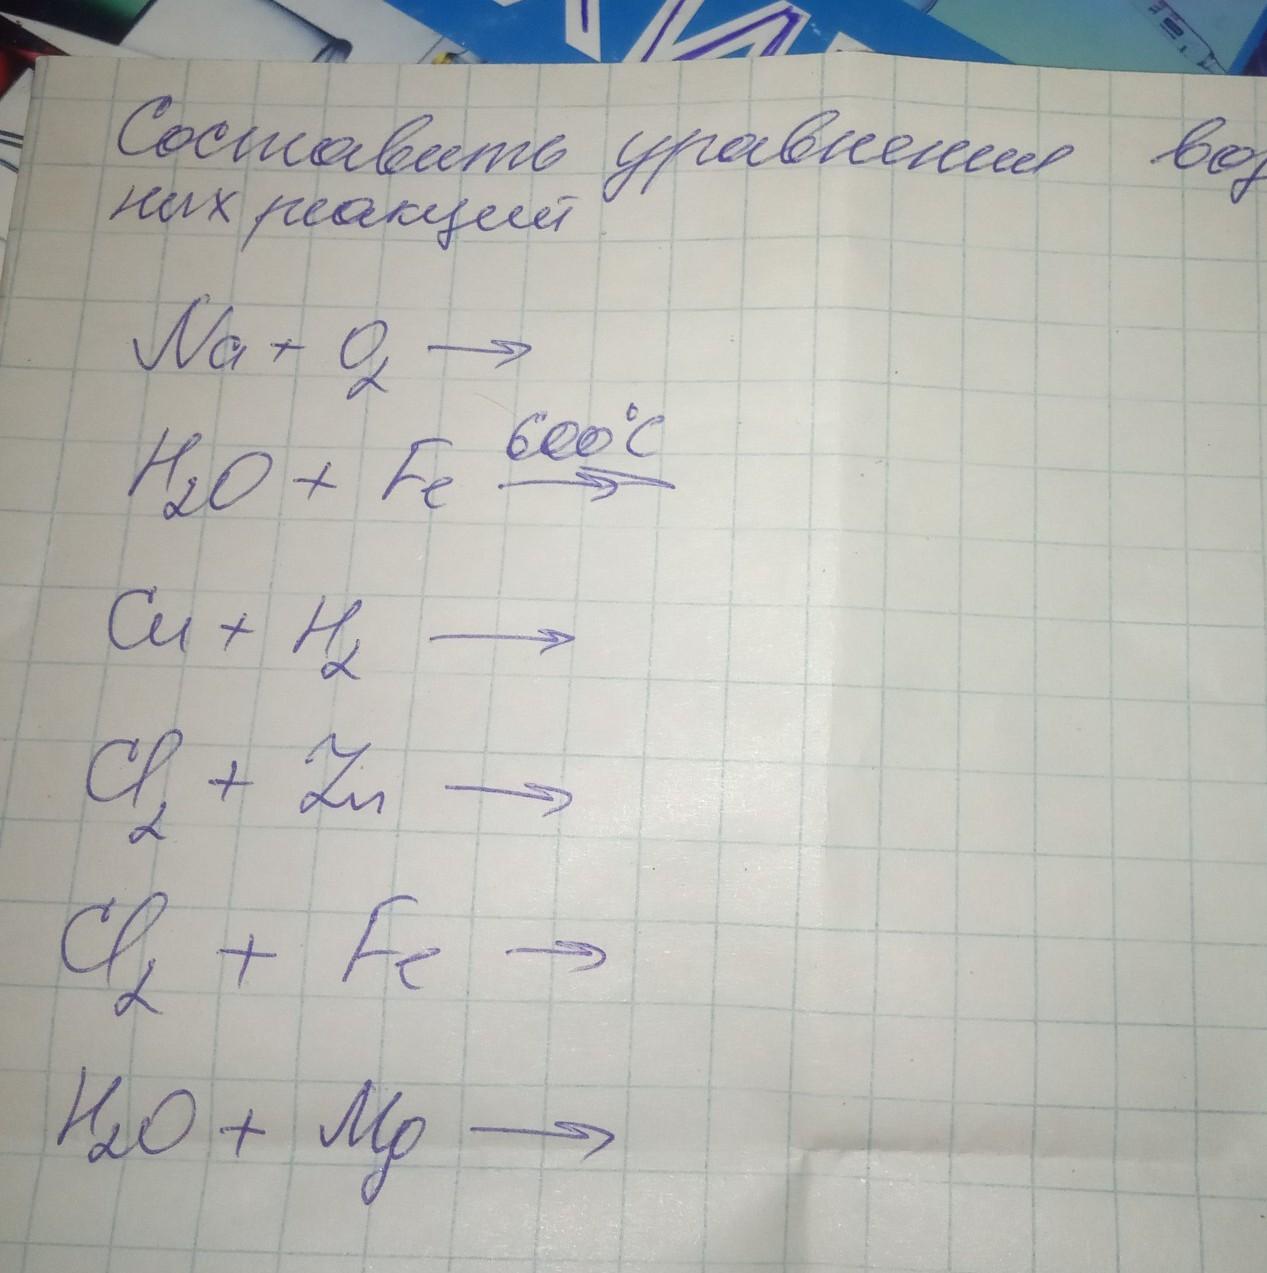 Составить уравнения воз
ных реакций
Na + O₂ →
H₂O + Fe 600°C →
Cu + H₂ →
Cl₂ + Zn →
Cl₂ + Fe →
H₂O + Mg →